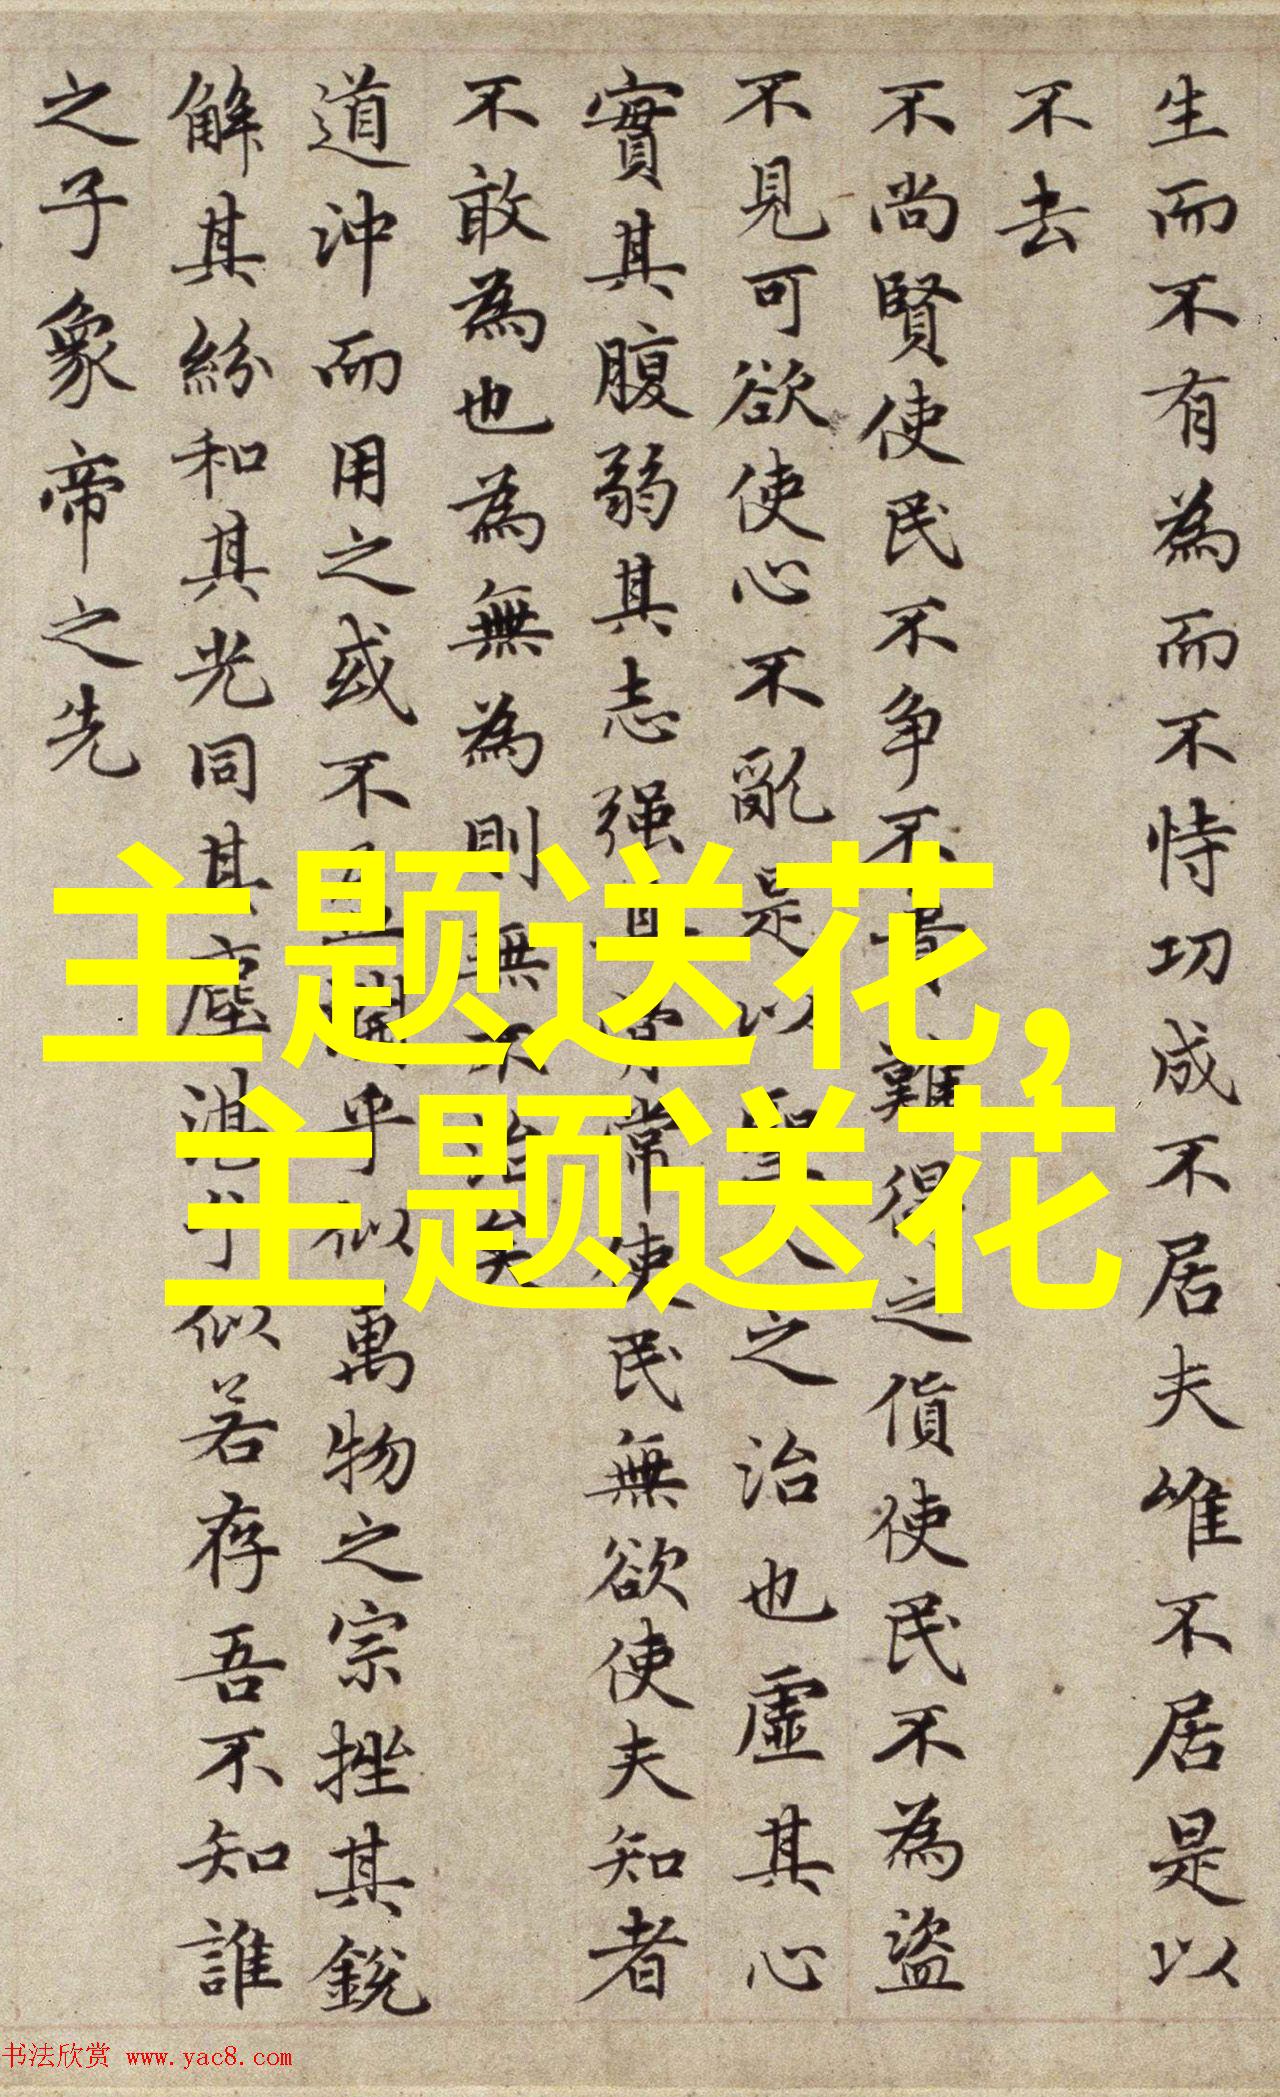 生而不有為而不恃功成不居夫唯不居是以
不去
不尚賢使民不争不貴難得之貨使民不為盜
不見可欲使心不亂是以聖人之治也虛其心
實其腹弱其志强其骨常使民無欲使夫知者
不敢為也為無為則無不治矣
道沖而用之或不盈淵乎似萬物之宗挫其銳
解其紛和其光同其塵湛兮似若存吾不知誰
之子象帝之先
主题送花,
主题送花
书法欣赏 www.yac8.com